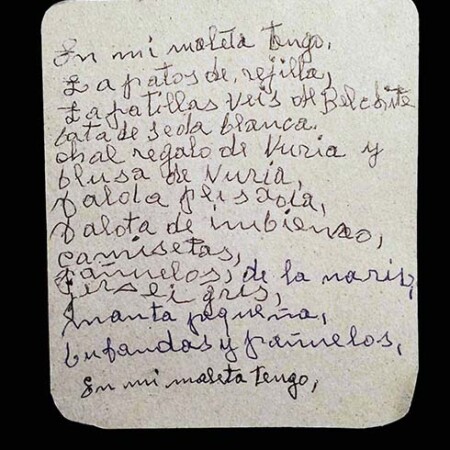 En mi maleta tengo,
Zapatos de, rejilla,
Zapatillas veis de Belchite
bata de seda blanca.
chal regalo de Nuria y
blusa de Nuria,
palda plisada,
palota de imbienso,
camisetas,
pañuelos, de la naris,
Jersei gris,
manta pequeña,
bufandas y pañuelos,
En mi maleta tengo,